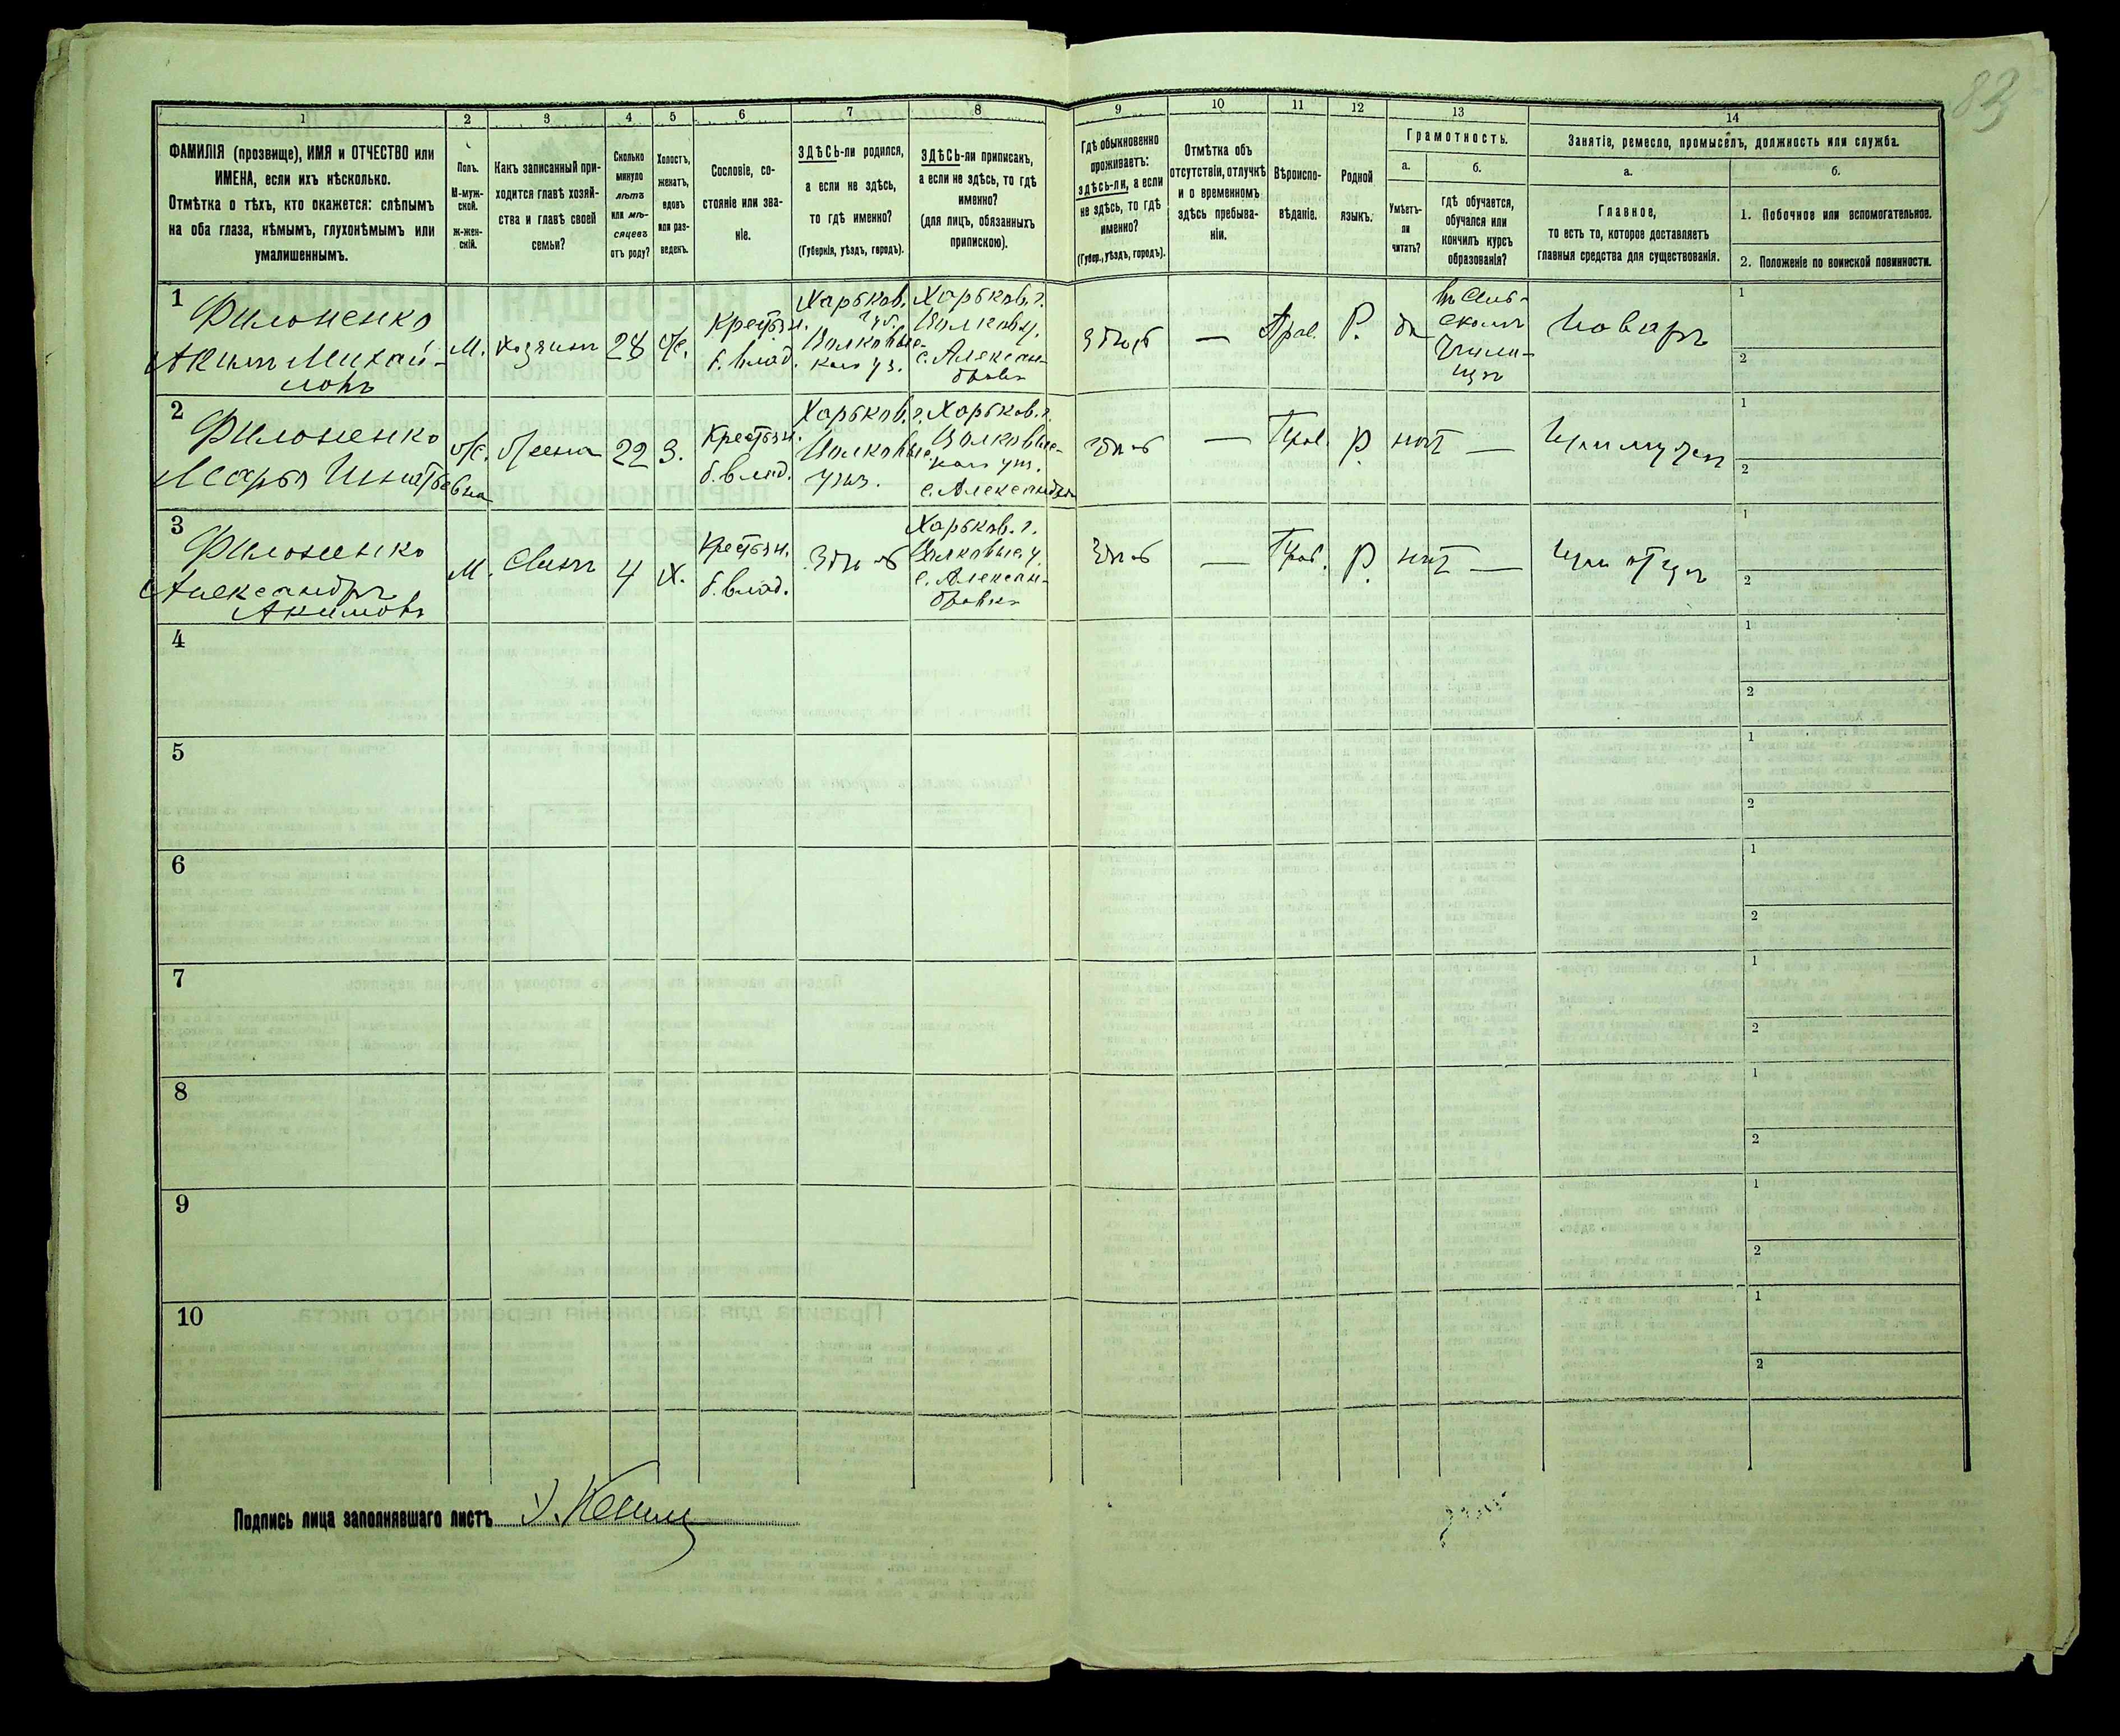 83
1
2
3
4
5
6
7
8
9
10
11
12
13
14
ФАМИЛІЯ (прозвище), ИМЯ и ОТЧЕСТВО или
ИМЕНА, если ихъ нѣсколько.
Отмѣтка о тѣхъ, кто окажется: слѣпымъ
на оба глаза, нѣмымъ, глухонѣмымъ или
умалишеннымъ.
Полъ.
М-муж-
ской.
Ж-жен-
скій.
Какъ записанный при-
ходится главѣ хозяй-
ства и главѣ своей
семьи?
Сколько
минуло
лѣтъ
или мѣ-
сяцевъ
отъ роду?
Холостъ,
женатъ,
вдовъ
или раз-
веденъ.
Сословіе, со-
стояніе или зва-
ніе.
ЗДѢСЬ-ли родился,
а если не здѣсь,
то гдѣ именно?
(Губернія, уѣздъ, городъ).
ЗДѢСЬ-ли приписанъ,
а если не здѣсь, то гдѣ
именно?
(для лицъ, обязанныхъ
припискою).
Гдѣ обыкновенно
проживаетъ:
здѣсь-ли, а если
не здѣсь, то гдѣ
именно?
(Губер., уѣздъ, городъ).
Отмѣтка объ
отсутствіи, отлучкѣ
и о временномъ
здѣсь пребыва-
ніи.
Вѣроиспо-
вѣданіе.
Родной
языкъ.
Грамотность.
а.
Умѣетъ-
ли
читать?
б.
гдѣ обучается,
обучался или
кончилъ курсъ
образованія?
Занятіе, ремесло, промыселъ, должность или служба.
а.
Главное,
то есть то, которое доставляетъ
главныя средства для существованія.
б.
1. Побочное или вспомогательное.
2. Положеніе по воинской повинности.
1
Филоненко
Акимъ Михай-
ловъ
М.
хозяинъ
28
ж.
Крестьян.
б. влад.
Харьков.
губ.
Валковс-
каго у.
Харьков. г.
Валков. у.
с. Алексан-
дровка
здѣсь
—
Прав.
Р.
да
въ Сель-
скомъ
Учили-
щѣ
Поваръ
1
2
2
Филоненко
Марья Игнатьевна
ж.
жена
22
З.
Крестьян.
б. влад.
Харьков. г.
Валковс.
уѣз.
Харьков. г.
Валковс-
каго уѣз.
с. Александров.
здѣсь
—
Прав.
Р.
нѣтъ
—
При мужѣ
1
2
3
Филоненко
Александръ
Акимовъ
М.
Сынъ
4
Х.
Крестьян.
б. влад.
Здѣсь
Харьков. г.
Валковск. у.
с. Алексан-
дровка
здѣсь
—
Прав.
Р.
нѣтъ
—
При отцѣ
1
2
4
1
2
5
1
2
6
1
2
7
1
2
8
1
2
9
1
2
10
1
2
Подпись лица заполнявшаго листъ